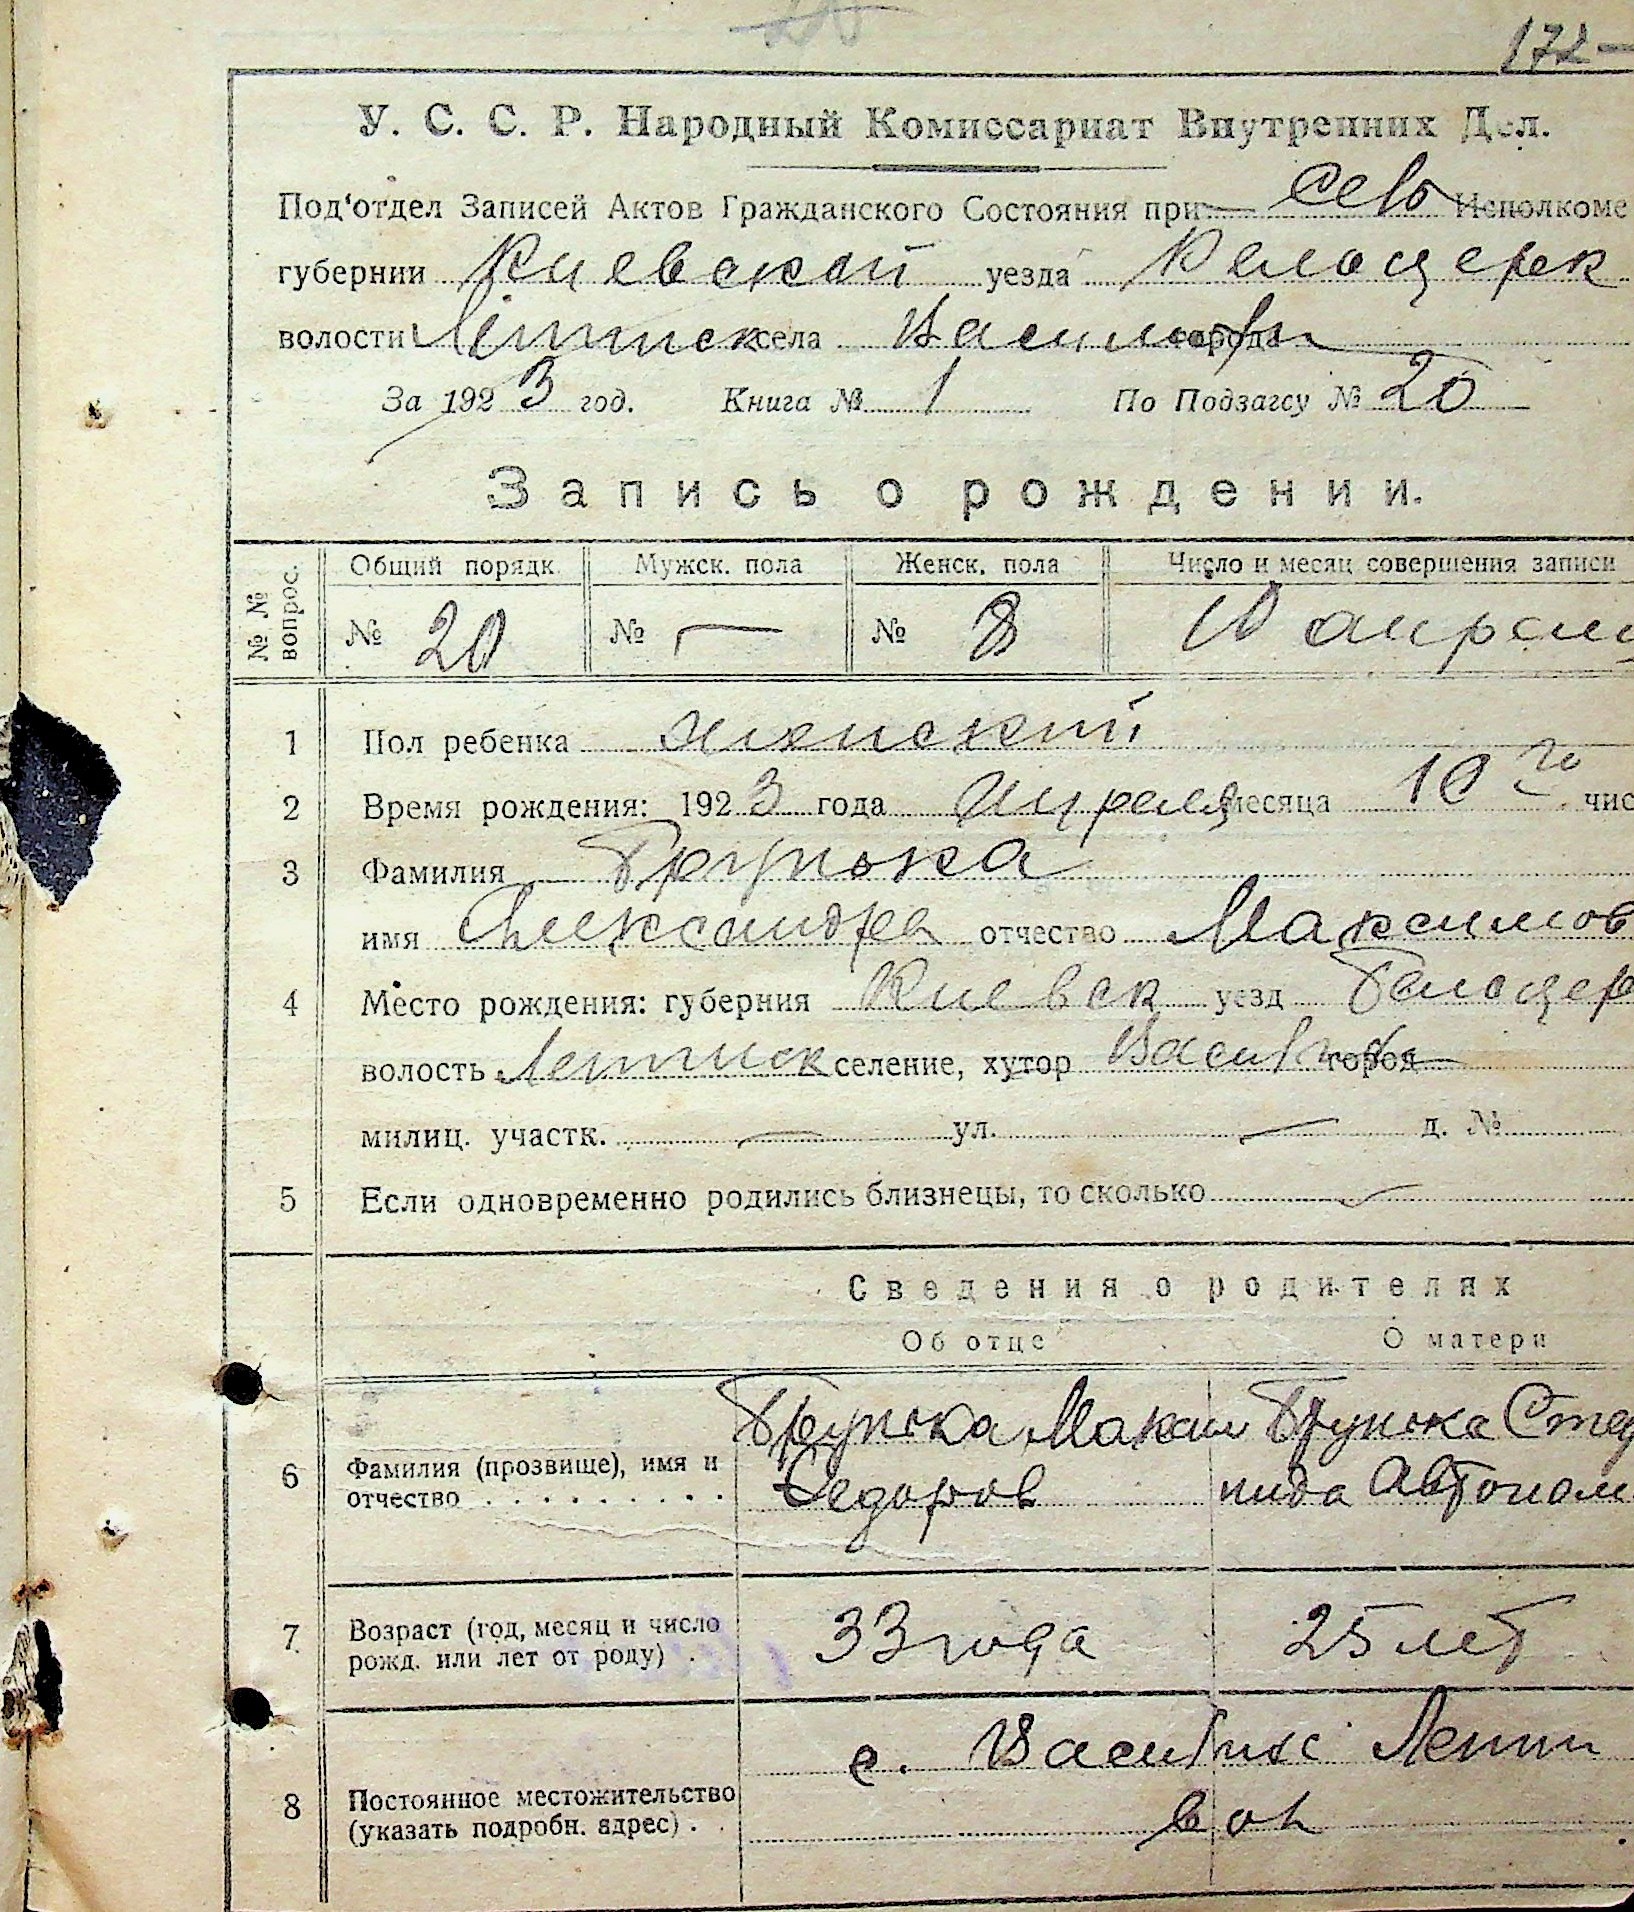 172
У. С. С. Р. Народный Комиссариат Внутренних Дел.
Под‘отдел Записей Актов Гражданского Состояния при Исполкоме
губернии Киевской уезда Белоцерк
волости села города
За 1923 год. Книга № 1 По Подзагсу № 20
Запись о рождении.
№ № вопрос. Общий порядк Мужск. пола Женск. пола Число и месяц совершения записи
№ 20 № — № 8 10 апреля
1 Пол ребенка женский
2 Время рождения: 1923 года Апреля месяца 10 го чис
3 Фамилия
имя Александра отчество Максимов
4 Место рождения: губерния Киевск уезд Белоцер
волость селение, хутор город
милиц. участк. — ул. — д. №
5 Если одновременно родились близнецы, то сколько —
Сведения о родителях
Об отце О матери
Максим
6 Фамилия (прозвище), имя и Федоров пида Автоном
отчество
7 Возраст (год, месяц и число 33 года 25 лет
рожд. или лет от роду) .
с.
8 Постоянное местожительство вол
(указать подробн. адрес) . .